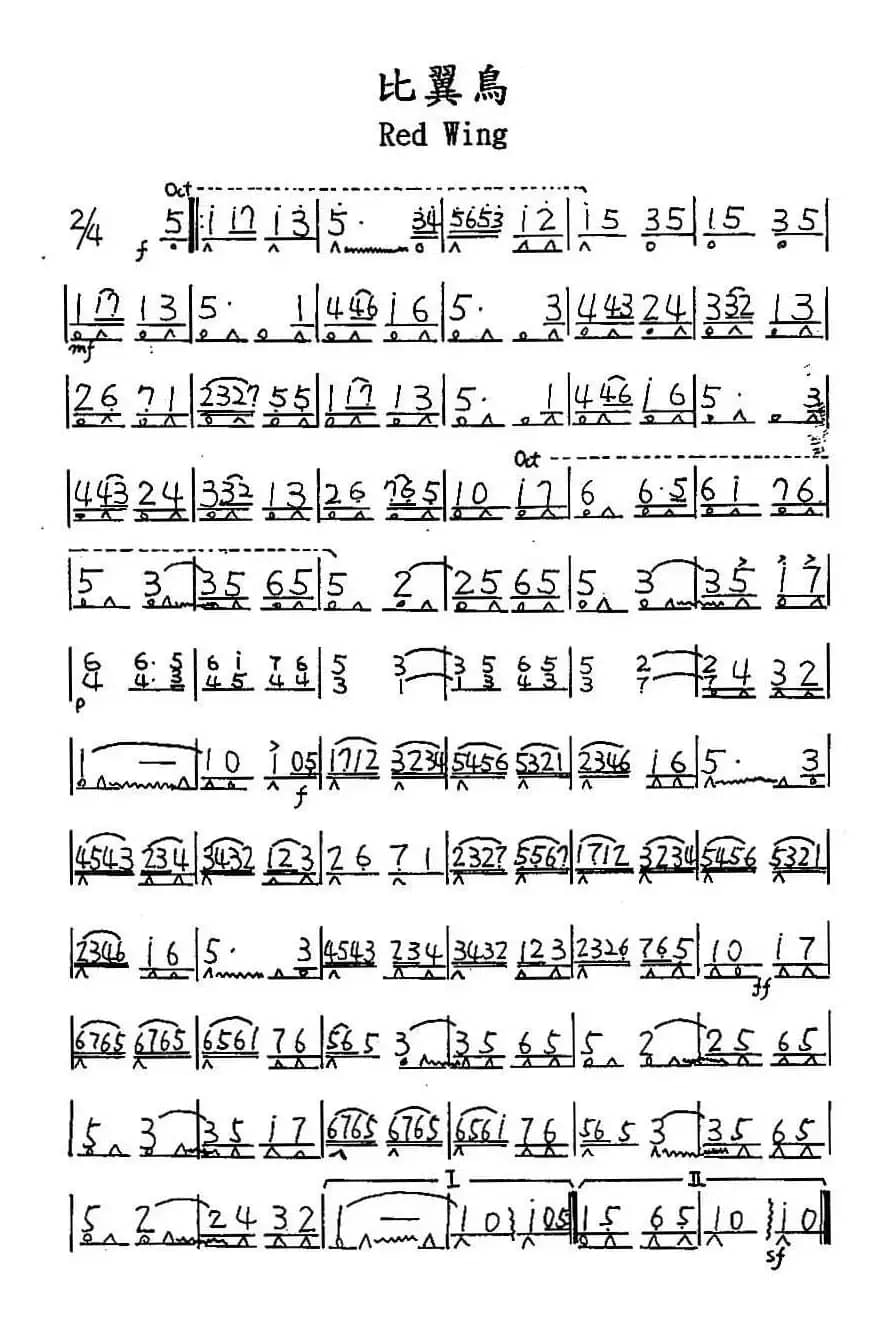 比翼鳥
Red Wing
Oct
2/4 f 5 ‖: i i7 i3 | 5· 34 | 5653 i2 | i5 35 | 15 35 |
| 1 17 13 | 5· 1 | 4 46 i6 | 5· 3 | 4 43 24 | 3 32 13 |
mf
| 26 71 | 2327 55 | 1 17 13 | 5· 1 | 4 46 i6 | 5· 3 |
Oct
| 4 43 24 | 3 32 13 | 26 765 | 10 i7 | 6 6·5 | 6i 76 |
| 5 3 | 35 65 | 5 2 | 25 65 | 5 3 | 35 i7 |
| 6 6· 5 | 6 i 7 6 | 5 3 | 3 5 6 5 | 5 2 | 2 4 32 |
4 4· 3 4 5 4 4 3 1 1 3 4 3 3 7 7
p
| 1 – | 10 i 05 | 1712 3234 | 5456 5321 | 2346 i6 | 5· 3 |
f
| 4543 234 | 3432 123 | 26 71 | 2327 5567 | 1712 3234 | 5456 5321 |
| 2346 i6 | 5· 3 | 4543 234 | 3432 123 | 2326 765 | 10 i7 |
ff
| 6765 6765 | 6561 76 | 565 3 | 35 65 | 5 2 | 25 65 |
| 5 3 | 35 i7 | 6765 6765 | 656i 76 | 565 3 | 35 65 |
I II
| 5 2 | 24 32 | 1 – | 10 i05 ‖ 15 65 | 10 i0 ‖
sf